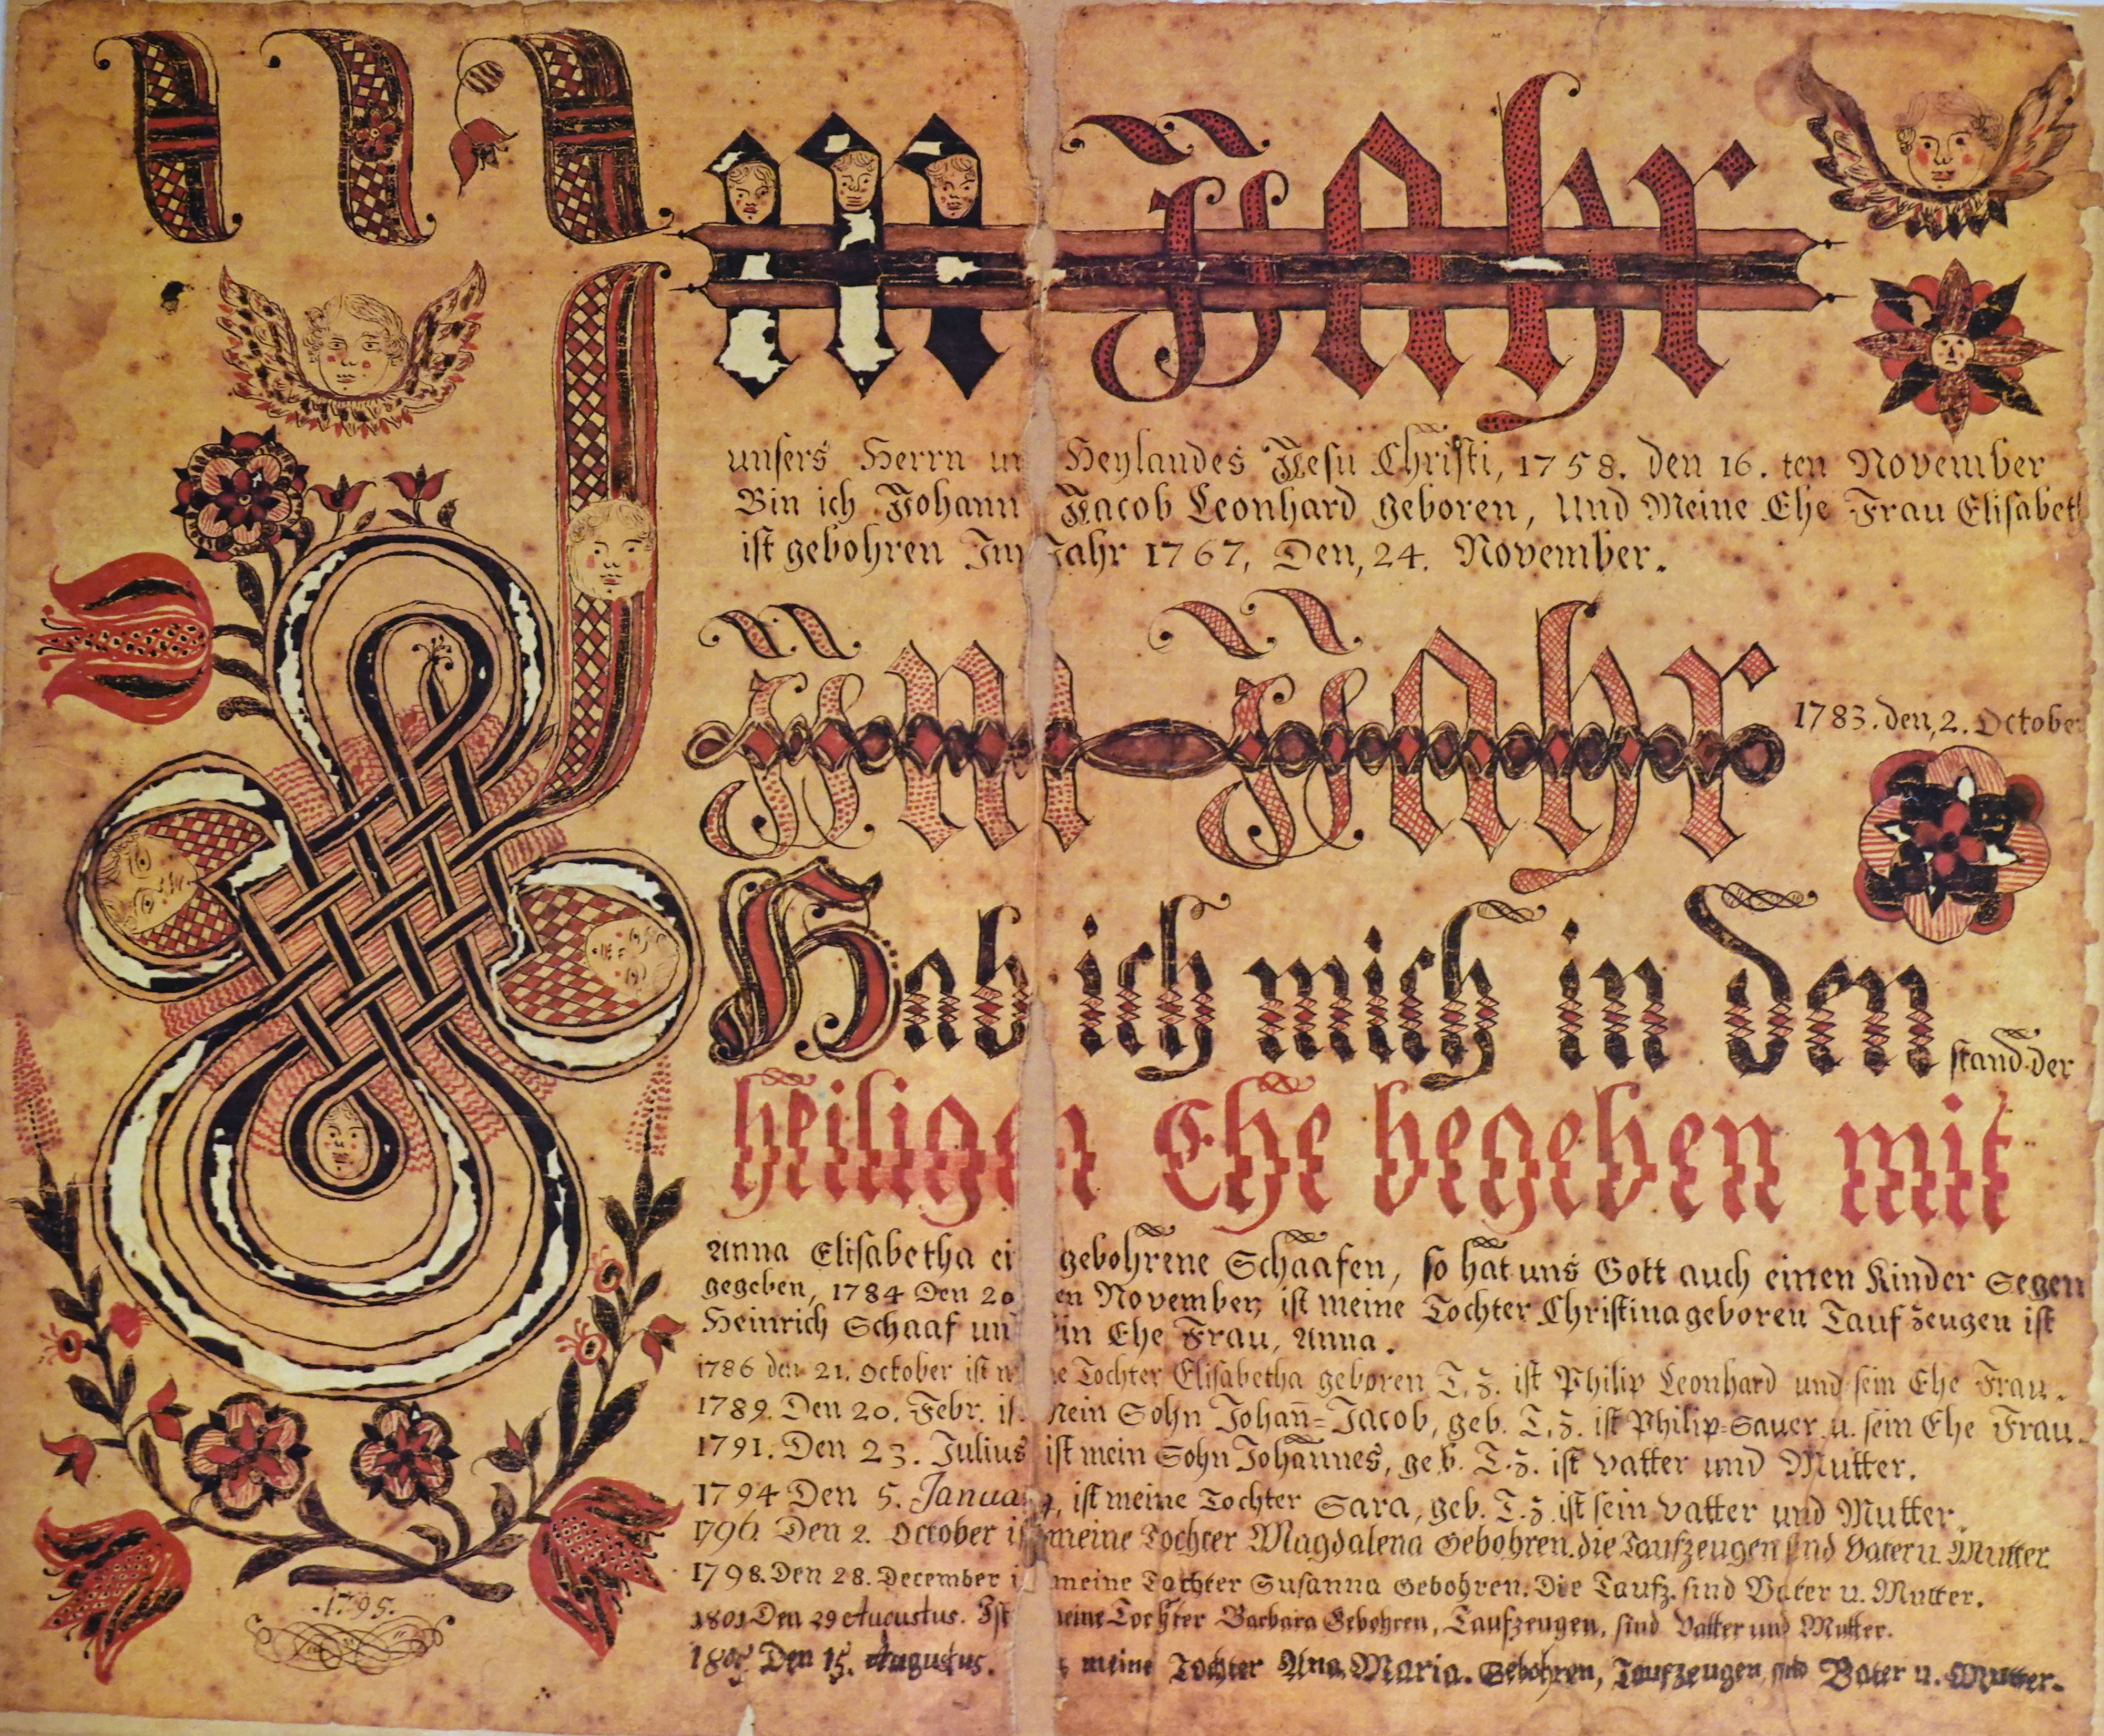 Im Jahr
unsers Herrn un Heylandes Jesu Christi, 1758. den 16. ten November
Bin ich Johann Jacob Leonhard geboren, Und Meine Ehe Frau Elisabeth
ist gebohren Im Jahr 1767, Den, 24. November.
Im Jahr 1783. den, 2. October
Hab ich mich in den stand der
heiligen Ehe begeben mit
Anna Elisabetha ei gebohrene Schaafen, so hat uns Gott auch einen Kinder Segen
gegeben, 1784 Den 20 en November, ist meine Tochter Christina geboren Tauf zeugen ist
Heinrich Schaaf un in Ehe Frau, Anna.
1786 den 21. October ist m e Tochter Elisabetha geboren, T. z. ist Philip Leonhard und sein Ehe Frau.
1789. Den 20. Febr. is mein Sohn Johan̄=Jacob, geb. T. z. ist Philip=Sauer u. sein Ehe Frau.
1791. Den 23. Julius ist mein Sohn Johannes, geb. T. z. ist Vatter und Mutter.
1794 Den 5. Janua, ist meine Tochter Sara, geb. T. z. ist sein Vatter und Mutter.
1796. Den 2. October is meine Tochter Magdalena Gebohren. die Taufzeugen sind Vater u. Mutter
1798. Den 28. December i meine Tochter Susanna Gebohren. Die Taufz. sind Vater u. Mutter.
1801 Den 29 Augustus. Ist meine Tochter Barbara Gebohren, Taufzeugen, sind Vatter und Mutter.
Den 15. Augustus. meine Tochter Ana Maria. Gebohren, Taufzeugen sind Vater u. Mutter.
1795.